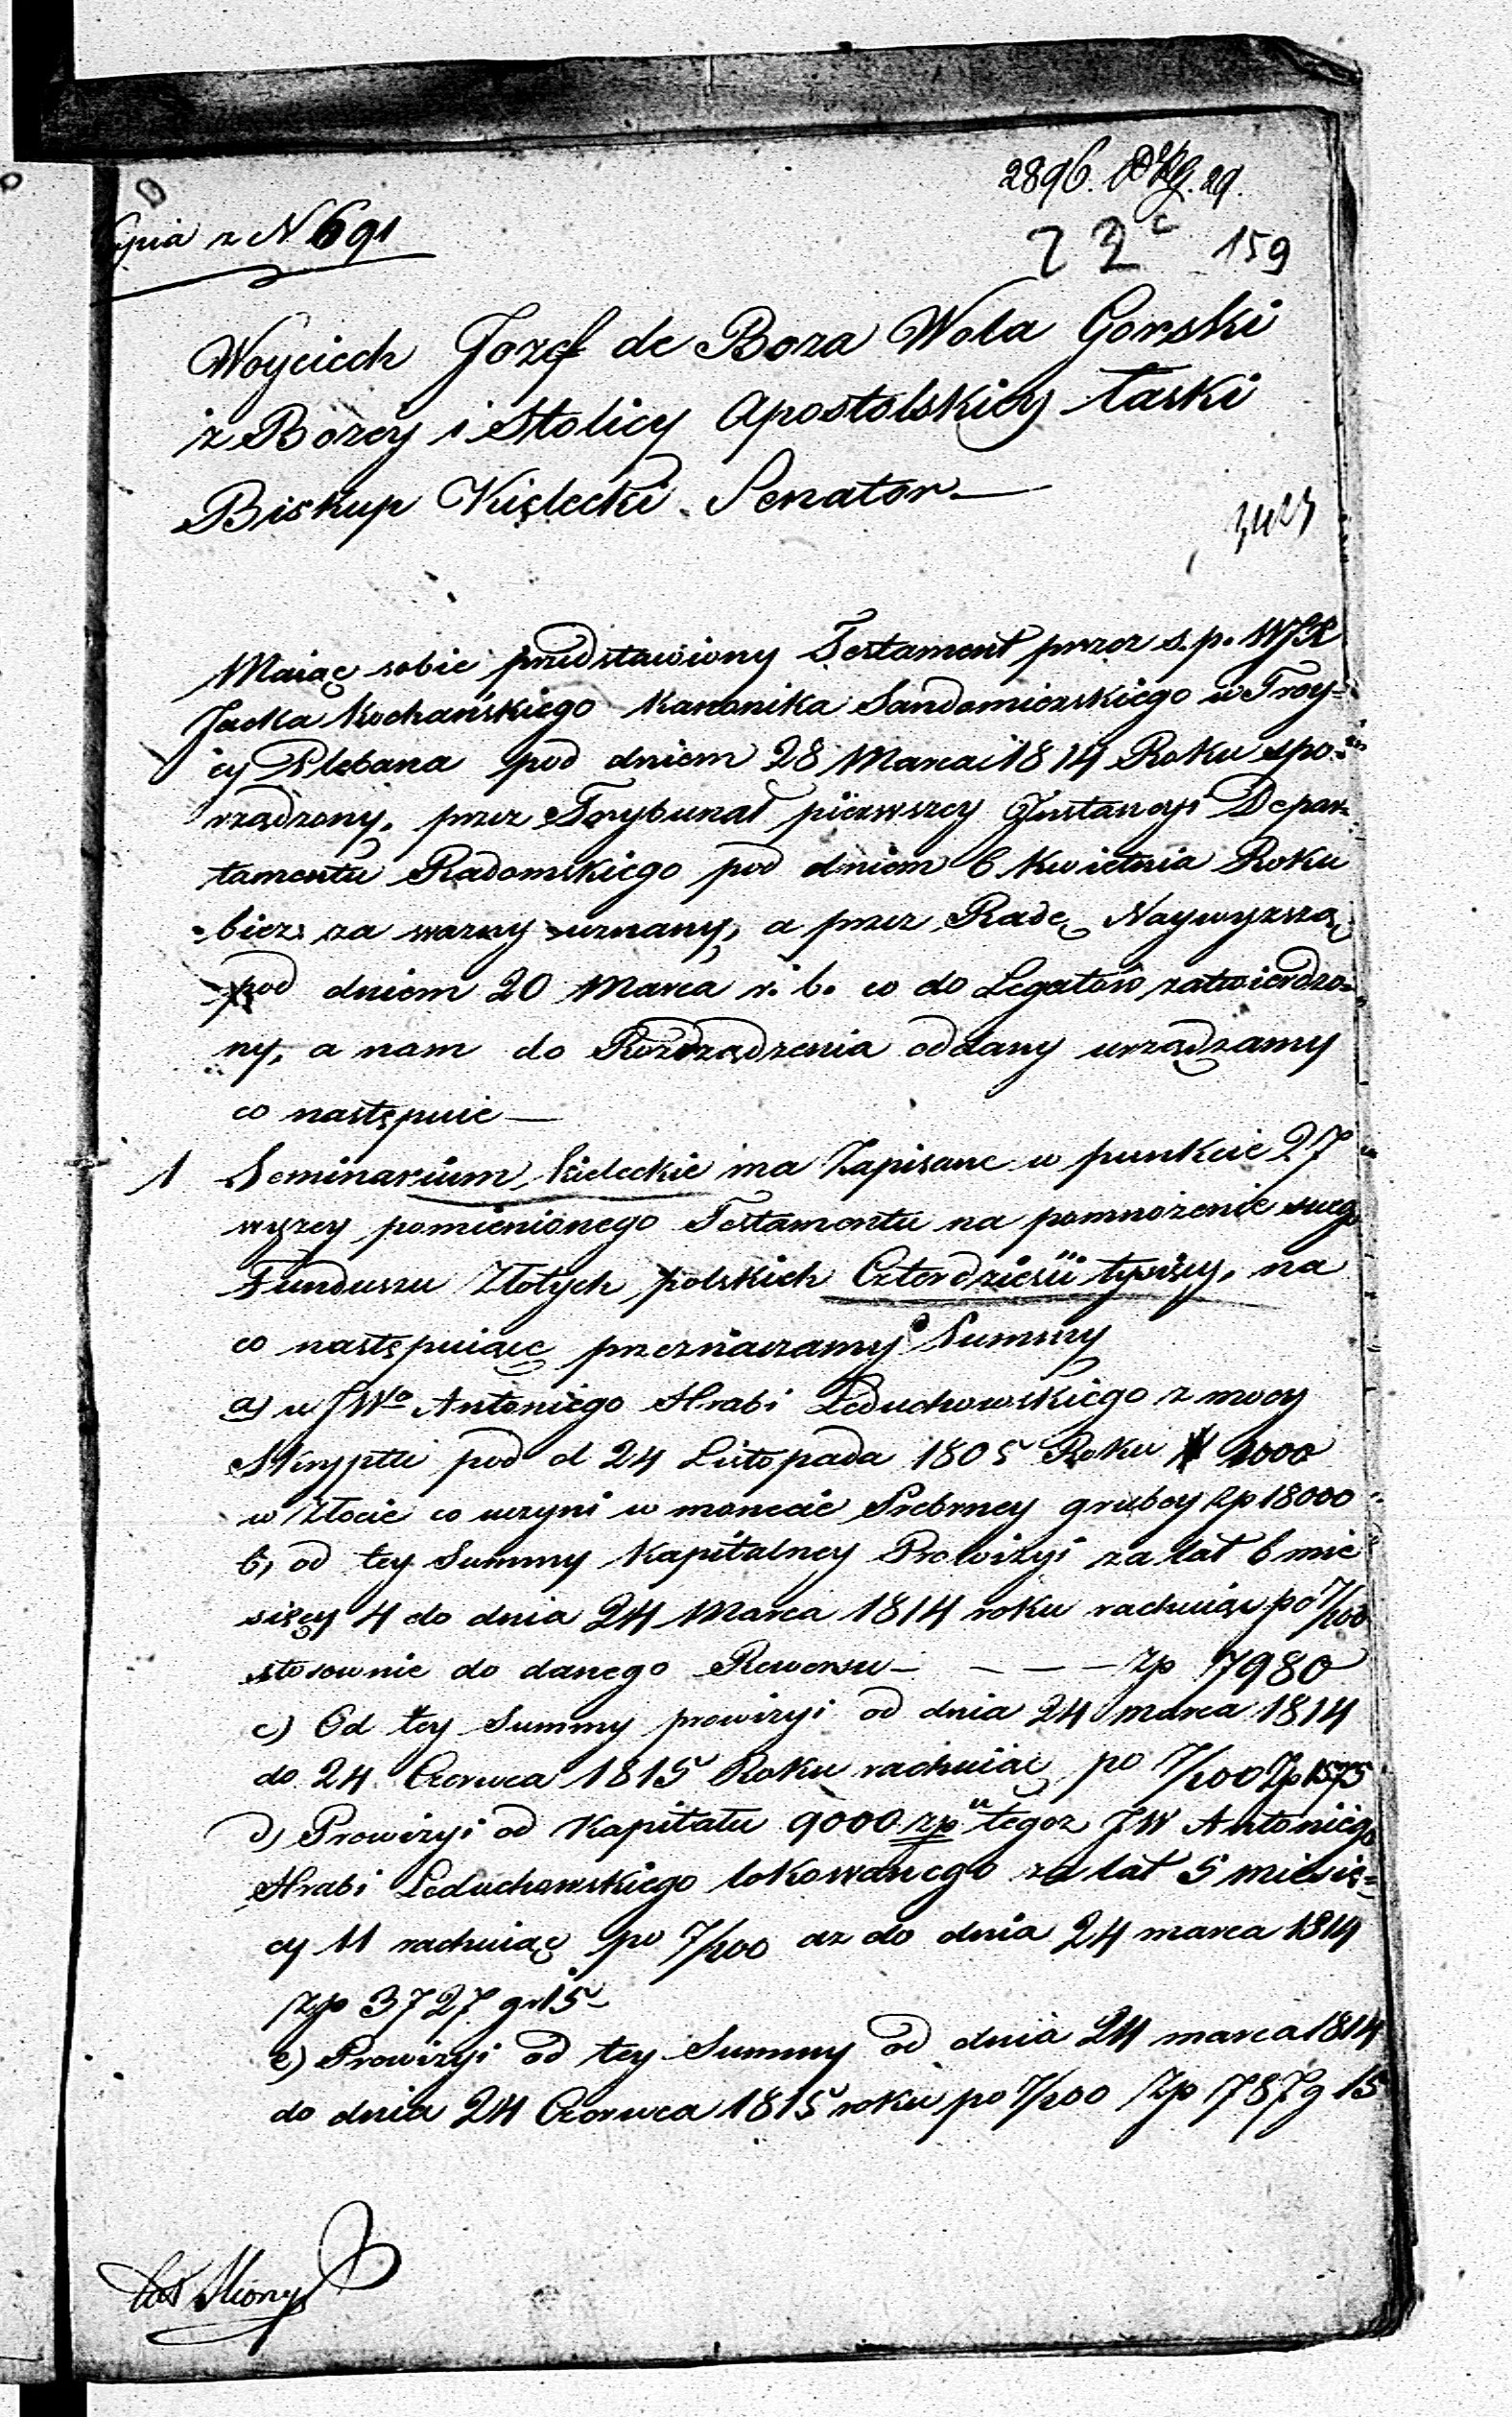 2896. 29.
Kopia z N 691
22 c 159
Woyciech Jozef de Boza Wola Gorski
z Bożey i Stolicy Apostolskiey Łaski
Biskup Kielecki Senator —
Maiąc sobie przedstawiony Testament przez s.p. WJX
Jacka Kochańskiego Kanonika Sandomierskiego w Troy=
cy Plebana pod dniem 28 Marca 1814 Roku spo=
rządzony, przez Trybunał pierwszey Jnstancyi Depar=
tamentu Radomskiego pod dniem 6 Kwietnia Roku
bież: za ważny uznany, a przez Radę Naywyższą
pod dniem 20 Marca r. b. co do Legatów zatwierdzo=
ny, a nam do Rozrządzenia oddany urządzamy
co następuie —
1 Seminarium Kieleckie ma Zapisane w punkcie 27
wyżey pomienionego Testamentu na pomnożenie swego
Funduszu Złotych polskich Czterdzieści tysięcy, na
co następuiące przeznaczamy Summy
a) u JWo Antoniego Hrabi Leduchowskiego z mocy
Skryptu pod d 24 Listopada 1805 Roku # 1000
w Złocie co uczyni w monecie Srebrney grubey Zp 18000
b, od tey Summy Kapitalney Prowizyi za lat 6 mie
sięcy 4 do dnia 24 Marca 1814 roku rachuiąc po 7/100
stosownie do danego Rewersu — — — — zp 7980
c) Od tey Summy prowizyi od dnia 24 marca 1814
do 24 Czerwca 1815 Roku rachuiąc po 7/100 Zp 1575
d) Prowizyi od Kapitału 9000 zp u tegoz JW Antoniego
Hrabi Leduchowskiego lokowanego za lat 5 miesię=
cy 11 rachuiąc po 7/100 az do dnia 24 marca 1814
Zp 3727 gr 15
e) Prowizyi od tey Summy od dnia 24 marca 1814
do dnia 24 Czerwca 1815 roku po 7/100 Zp 787 g 15